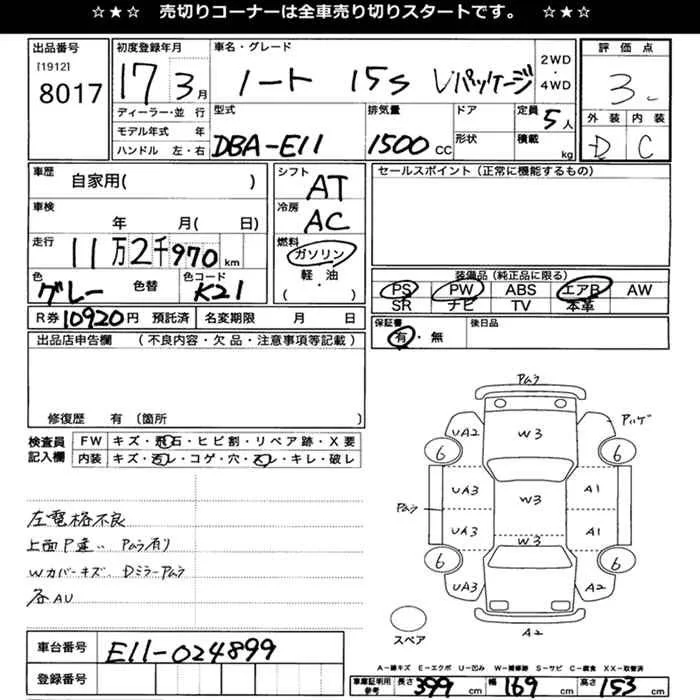 ☆★☆ 売切りコーナーは全車売り切りスタートです。 ☆★☆
出品番号
[1912]
8017
初度登録年月
17 3月
車名・グレード
ノート 15s Vパッケージ
2WD
・
4WD
評価点
3
外装 内装
D C
ディーラー・並行
モデル年式 年
ハンドル 左・右
型式
DBA-E11
排気量
1500 CC
ドア
形状
定員
5人
積載
kg
車歴
自家用( )
車検
年 月( 日)
走行
11万2千970km
色
グレー
色替
色コード
K21
シフト
AT
冷房
AC
燃料
ガソリン
軽・油
( ・ )
セールスポイント(正常に機能するもの)
装備品(純正品に限る)
PS PW ABS エアB AW
SR ナビ TV 本革
R券 10920円 預託済
名変期限 月 日
保証書
有・無
後日品
出品店申告欄 (不良内容・欠品・注意事項等記載)
修復歴 有 〔箇所 〕
検査員
記入欄
FW キズ・飛石・ヒビ割・リペア跡・X要
内装 キズ・汚レ・コゲ・穴・スレ・キレ・破レ
左電格不良
上面P違い Pムラ有り
Wカバーキズ、DミラーPムラ
各AU
車台番号
E11-024899
登録番号
Pムラ
UA2
W3
Pハゲ
6
6
UA3
W3
A1
Pムラ
UA3
A1
W3
6
6
UA3
A2
スペア
A2
A-線キズ E-エクボ U-凹み W-補修跡 S-サビ C-腐食 XX-取替済
車庫証明用
参考
長さ 399cm
幅 169cm
高さ 153cm